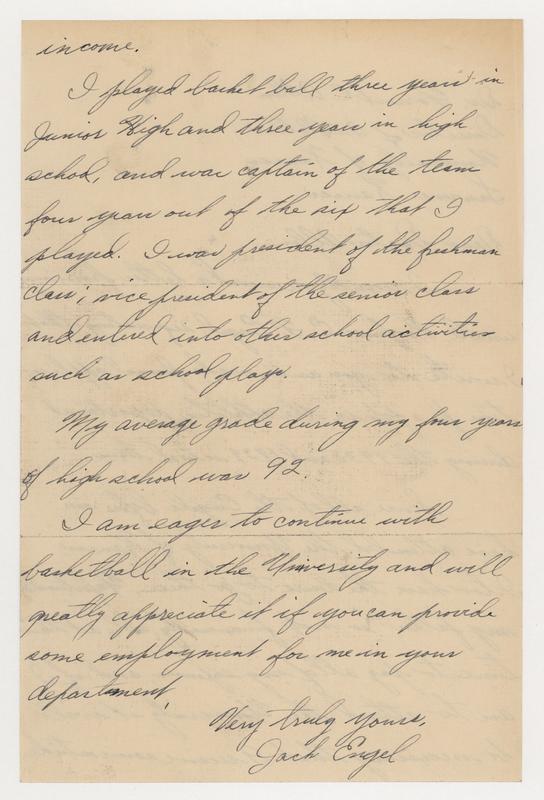 income.
I played basket ball three years in
Junior High and three years in high
school, and was captain of the team
four years out of the six that I
played. I was president of the freshman
class; vice president of the senior class
and entered into other school activities
such as school plays.
My average grade during my four years
of high school was 92.
I am eager to continue with
basketball in the University and will
greatly appreciate it if you can provide
some employment for me in your
department.
Very truly yours,
Jack Engel